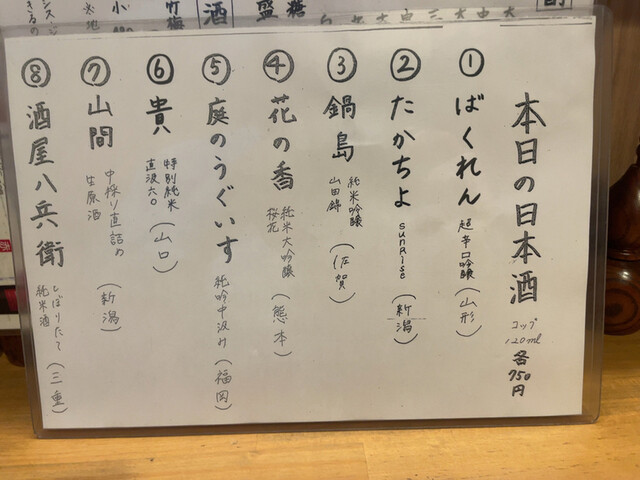 本日の日本酒
コップ
120ml
各
750
円
① ばくれん 超辛口吟醸 (山形)
② たかちよ sunRise (新潟)
③ 鍋島
純米吟醸
山田錦
(佐賀)
④ 花の香
純米大吟醸
桜花
(熊本)
⑤ 庭のうぐいす 純吟中汲み (福岡)
⑥ 貴
特別純米
直汲六〇
(山口)
⑦ 山間
中採り直詰め
生原酒
(新潟)
⑧ 酒屋八兵衛
しぼりたて
純米酒
(三重)